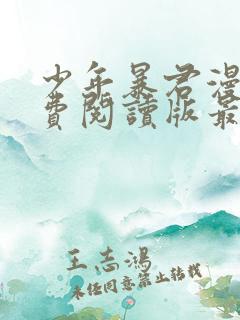 少年暴君漫
费阅讀版最
王志鴻
未经同意禁止转载